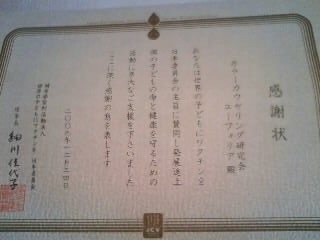 感謝状
カラーカウンセリング研究会
ユーフォリア 殿
あなたは世界の子どもにワクチンを
日本委員会の主旨に賛同し発展途上
国の子どもの命と健康を守るための
活動に多大なご支援を下さいました
ここに深く感謝の意を表します
特定非営利活動法人
世界の子どもにワクチンを 日本委員会
理事長 細川佳代子
JCV